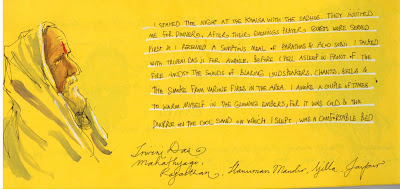 I STAYED THE NIGHT AT THE KHALSA WITH THE SADHUS. THEY INVITED
ME FOR DINNER, AFTER THEIR EVENINGS PRAYER, GUESTS WERE SERVED
FIRST & I RECEIVED A SUMPTIOUS MEAL OF PARATHAS & ALOO SABJI. I TALKED
WITH TRIVENI DAS JI FOR AWHILE, BEFORE I FELL ASLEEP IN FRONT OF THE
FIRE AMIDST THE SOUNDS OF BLARING LOUDSPEAKERS, CHANTS, BELLS &
THE SMOKE FROM VARIOUS FIRES IN THE AREA. I AWOKE A COUPLE OF TIMES
TO WARM MYSELF IN THE GLOWING EMBERS, FOR IT WAS COLD & THE
DHURRIE ON THE COOL SAND ON WHICH I SLEPT, WAS A COMFORTABLE BED
Triveni Das
Mahathyagi,
Rajasthan, Hanuman Mandir, Zilla, Jaipur